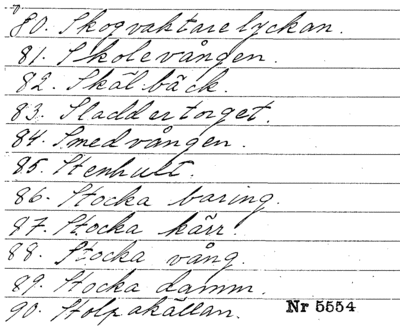 80. Skogvaktarelyckan.
81. Skolevången.
82. Skälbäck.
83. Sladdertorget.
84. Smedvången.
85. Stenhult.
86. Stocka baring.
87. Stocka kärr.
88. Stocka vång.
89. Stocka damm.
90. Stolpakällan. Nr 5554